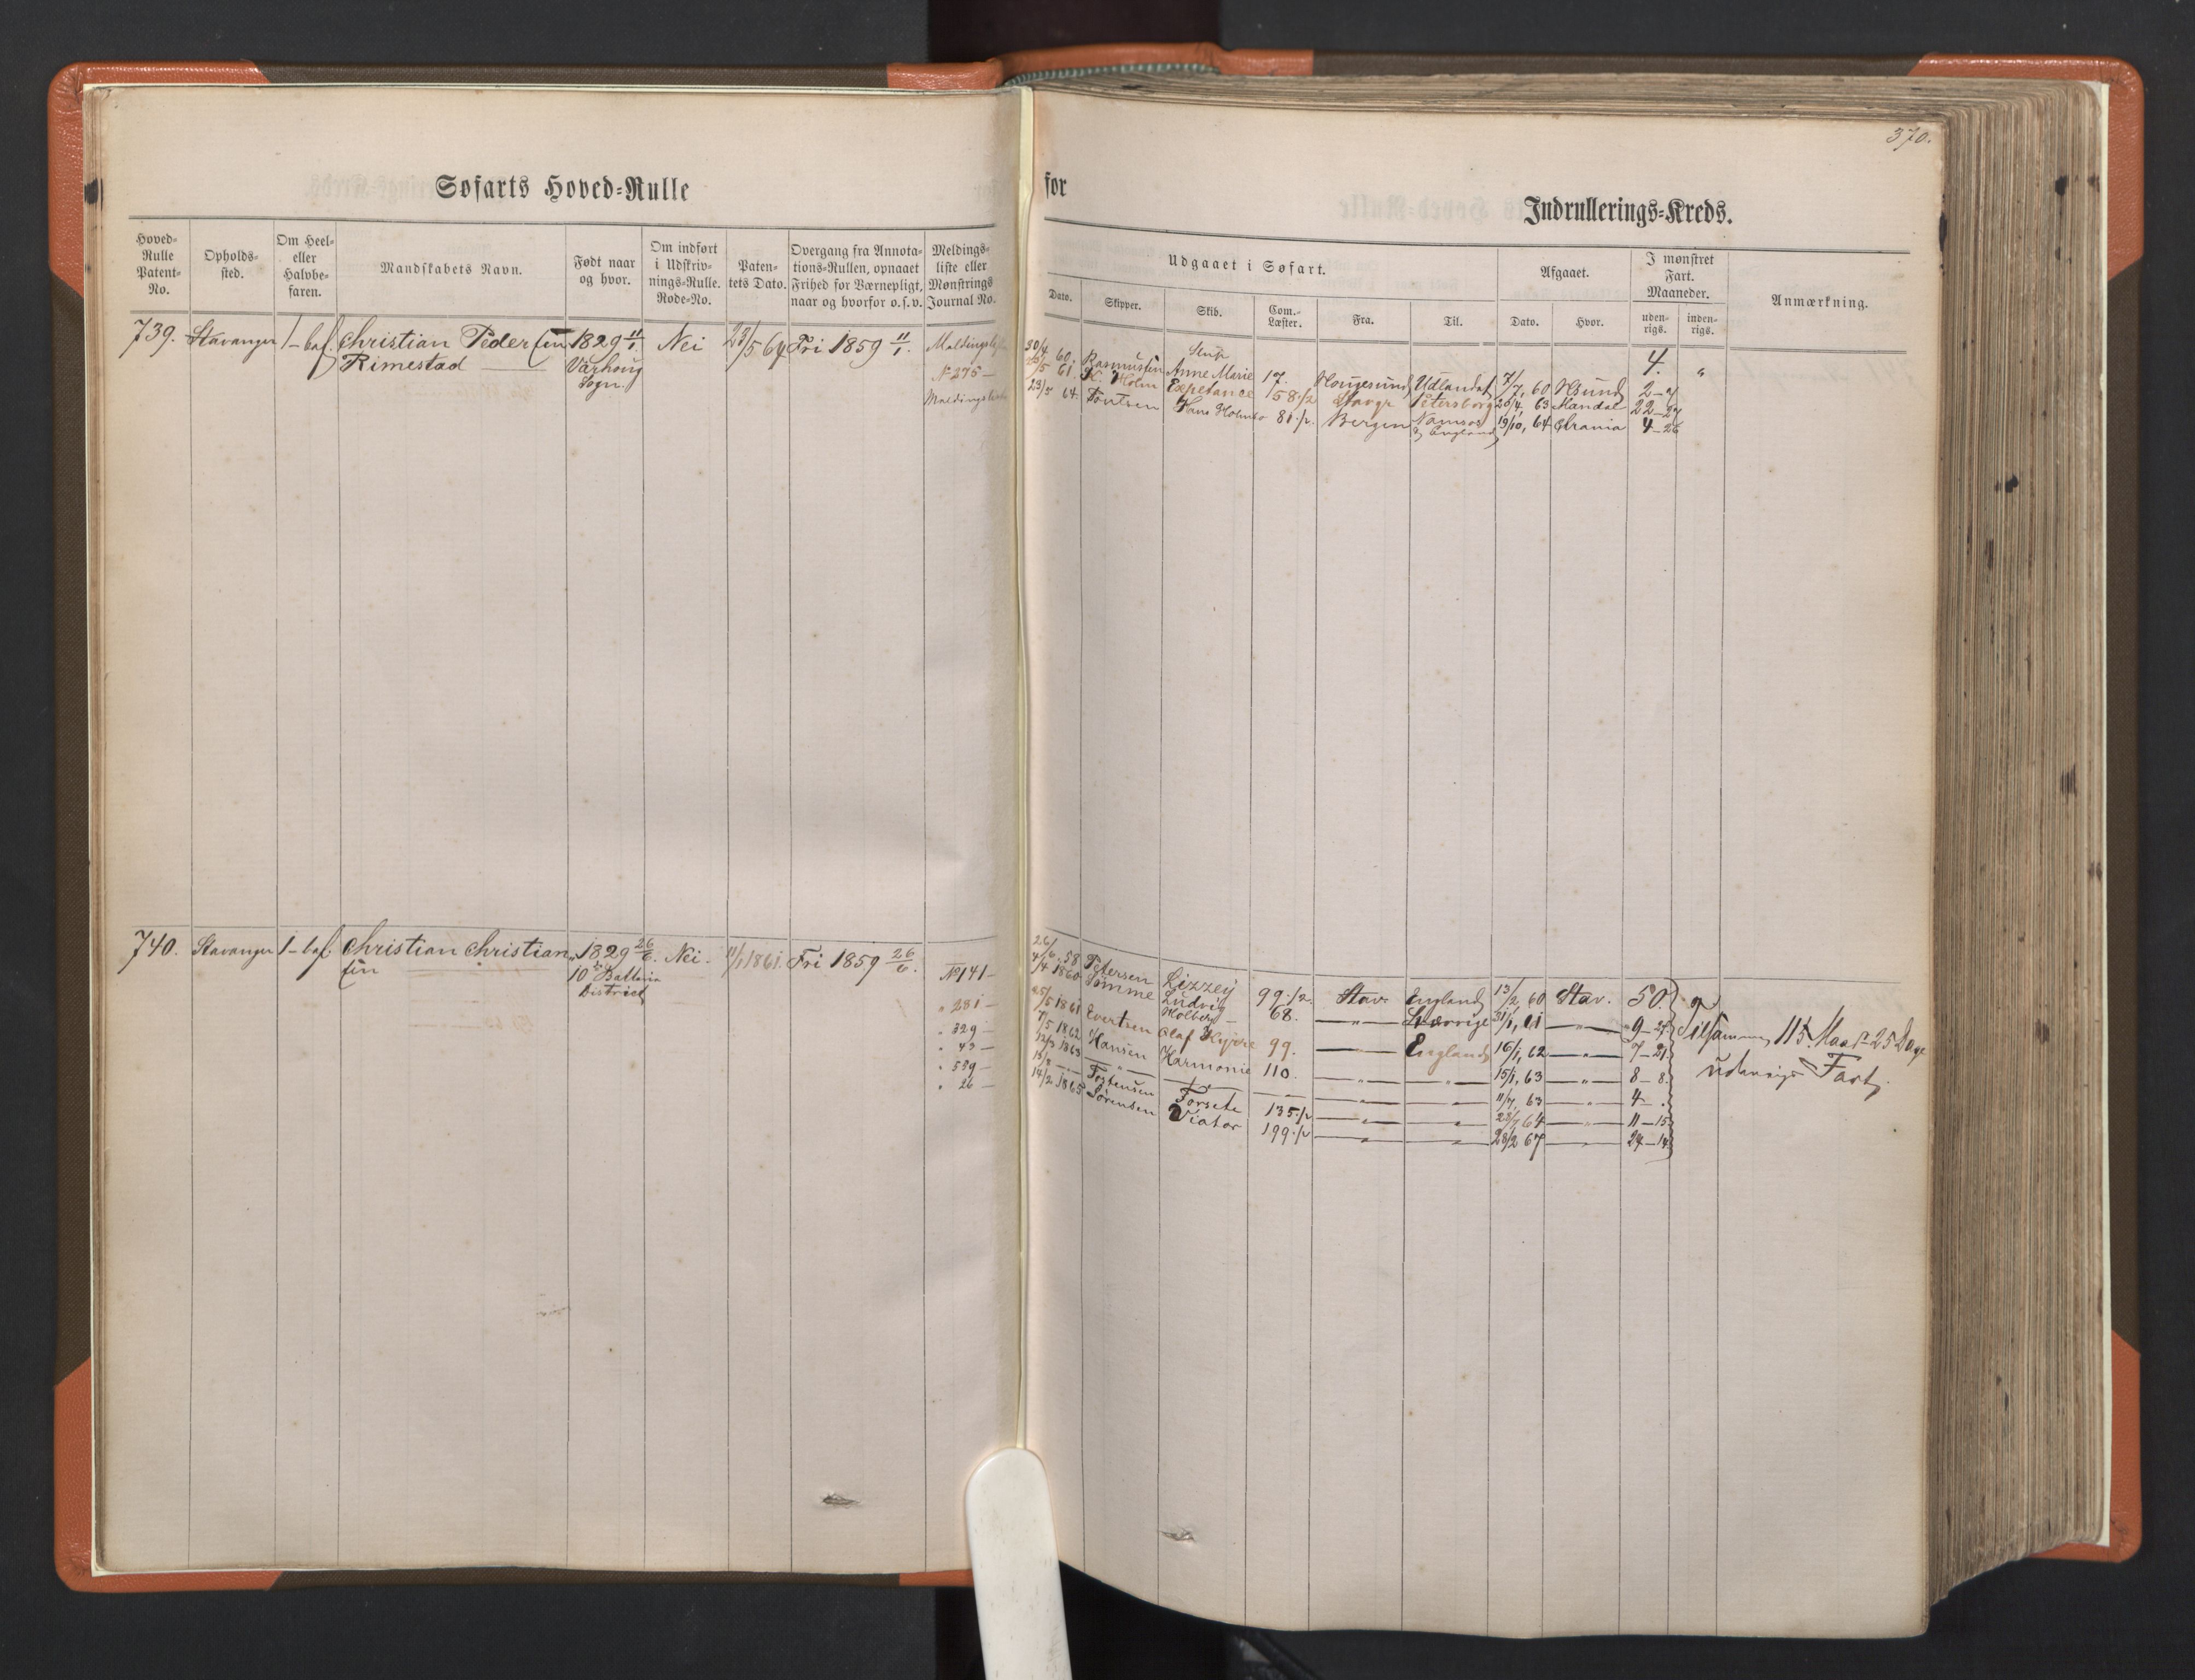 370.
Søfarts Hoved-Rulle
for
Indrullerings-Kreds.
Hoved-Rulle Patent-No.
Opholds-sted.
Om Heel- eller Halvbe-faren.
Mandskabets Navn.
Født naar og hvor.
Om indført i Udskriv-nings-Rulle. Rode-No.
Paten-tets Dato.
Overgang fra Annota-tions-Rullen, opnaaet Frihed for Værnepligt, naar og hvorfor o.s.v.
Meldings-liste eller Mønstrings Journal No.
Udgaaet i Søfart.
Dato.
Skipper.
Skib.
Com.-Læster.
Fra.
Til.
Afgaaet.
Dato.
Hvor.
I mønstret Fart. Maaneder.
uden-rigs.
inden-rigs.
Anmærkning.
739. Stavanger 1 - baf. Christian Pedersen 1829 11/1. Nei 23/5 64 Fri 1859 11/1.
Rimestad Varhoug
Sogn.
No 275 -
30/4 60. Rasmussen Anne Marie 17. Hougesund Udlandet 7/7, 60 Hsund 4. "
/5 61. K. Holm Expetance 58 1/2 Stavgr Petersborg 20/4 63 Mandal 22-27
23/5 64. Hans Holmbo 81 1/2. Bergen Namsos 19/10, 64 Chrania 4-26
England
740. Stavanger 1 - baf. Christian Christian- 1829 26/6. Nei. 11/1 1861. Fri 1859 26/6.
sen 10de Batterie
District
26/6. 58 Petersen Lizzey 99 1/2 Stav. England 13/2 60 Stav. 50.
No 141 -
4/4 1860 Sømme Ludvig Holberg - 68. - " - Sverrige 31/1, 61 - " - 9-27
" 281 -
25/5 1861 Evertsen Olaf Kyrre 99. - " - England 16/1, 62 - " - 7-21
" 329 -
7/5 1862 Hansen Harmonie 110. - " - - " - 15/1, 63 - " - 8-8.
" 43 -
12/3 1863 - " - - " - - " - - " - 11/7, 63 - " - 4-.
" 559 -
Tostensen Forsete 135 1/2 - " - - " - 23/7 64 - " - 11-15
" 26 -
14/2 1865 Sørensen Viator 199 1/2 - " - - " - 28/2 67 - " - 24-14
Tilsammen 115 Maar 25 Dage
udenrigs Fart.